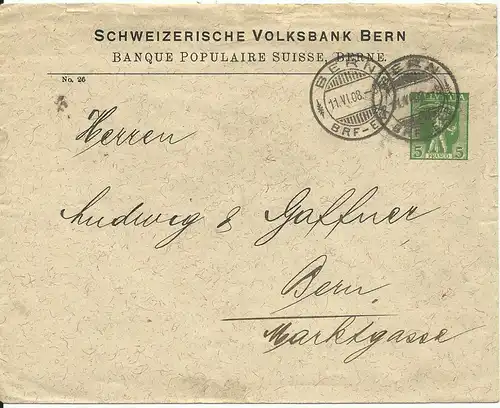 SCHWEIZERISCHE VOLKSBANK BERN
BANQUE POPULAIRE SUISSE, BERNE.
No. 26
BERN
11.VI.08.
BRF-E
BERN
5 FRANCO 5
Herren
Ludwig & Gaffner
Bern
Marktgasse